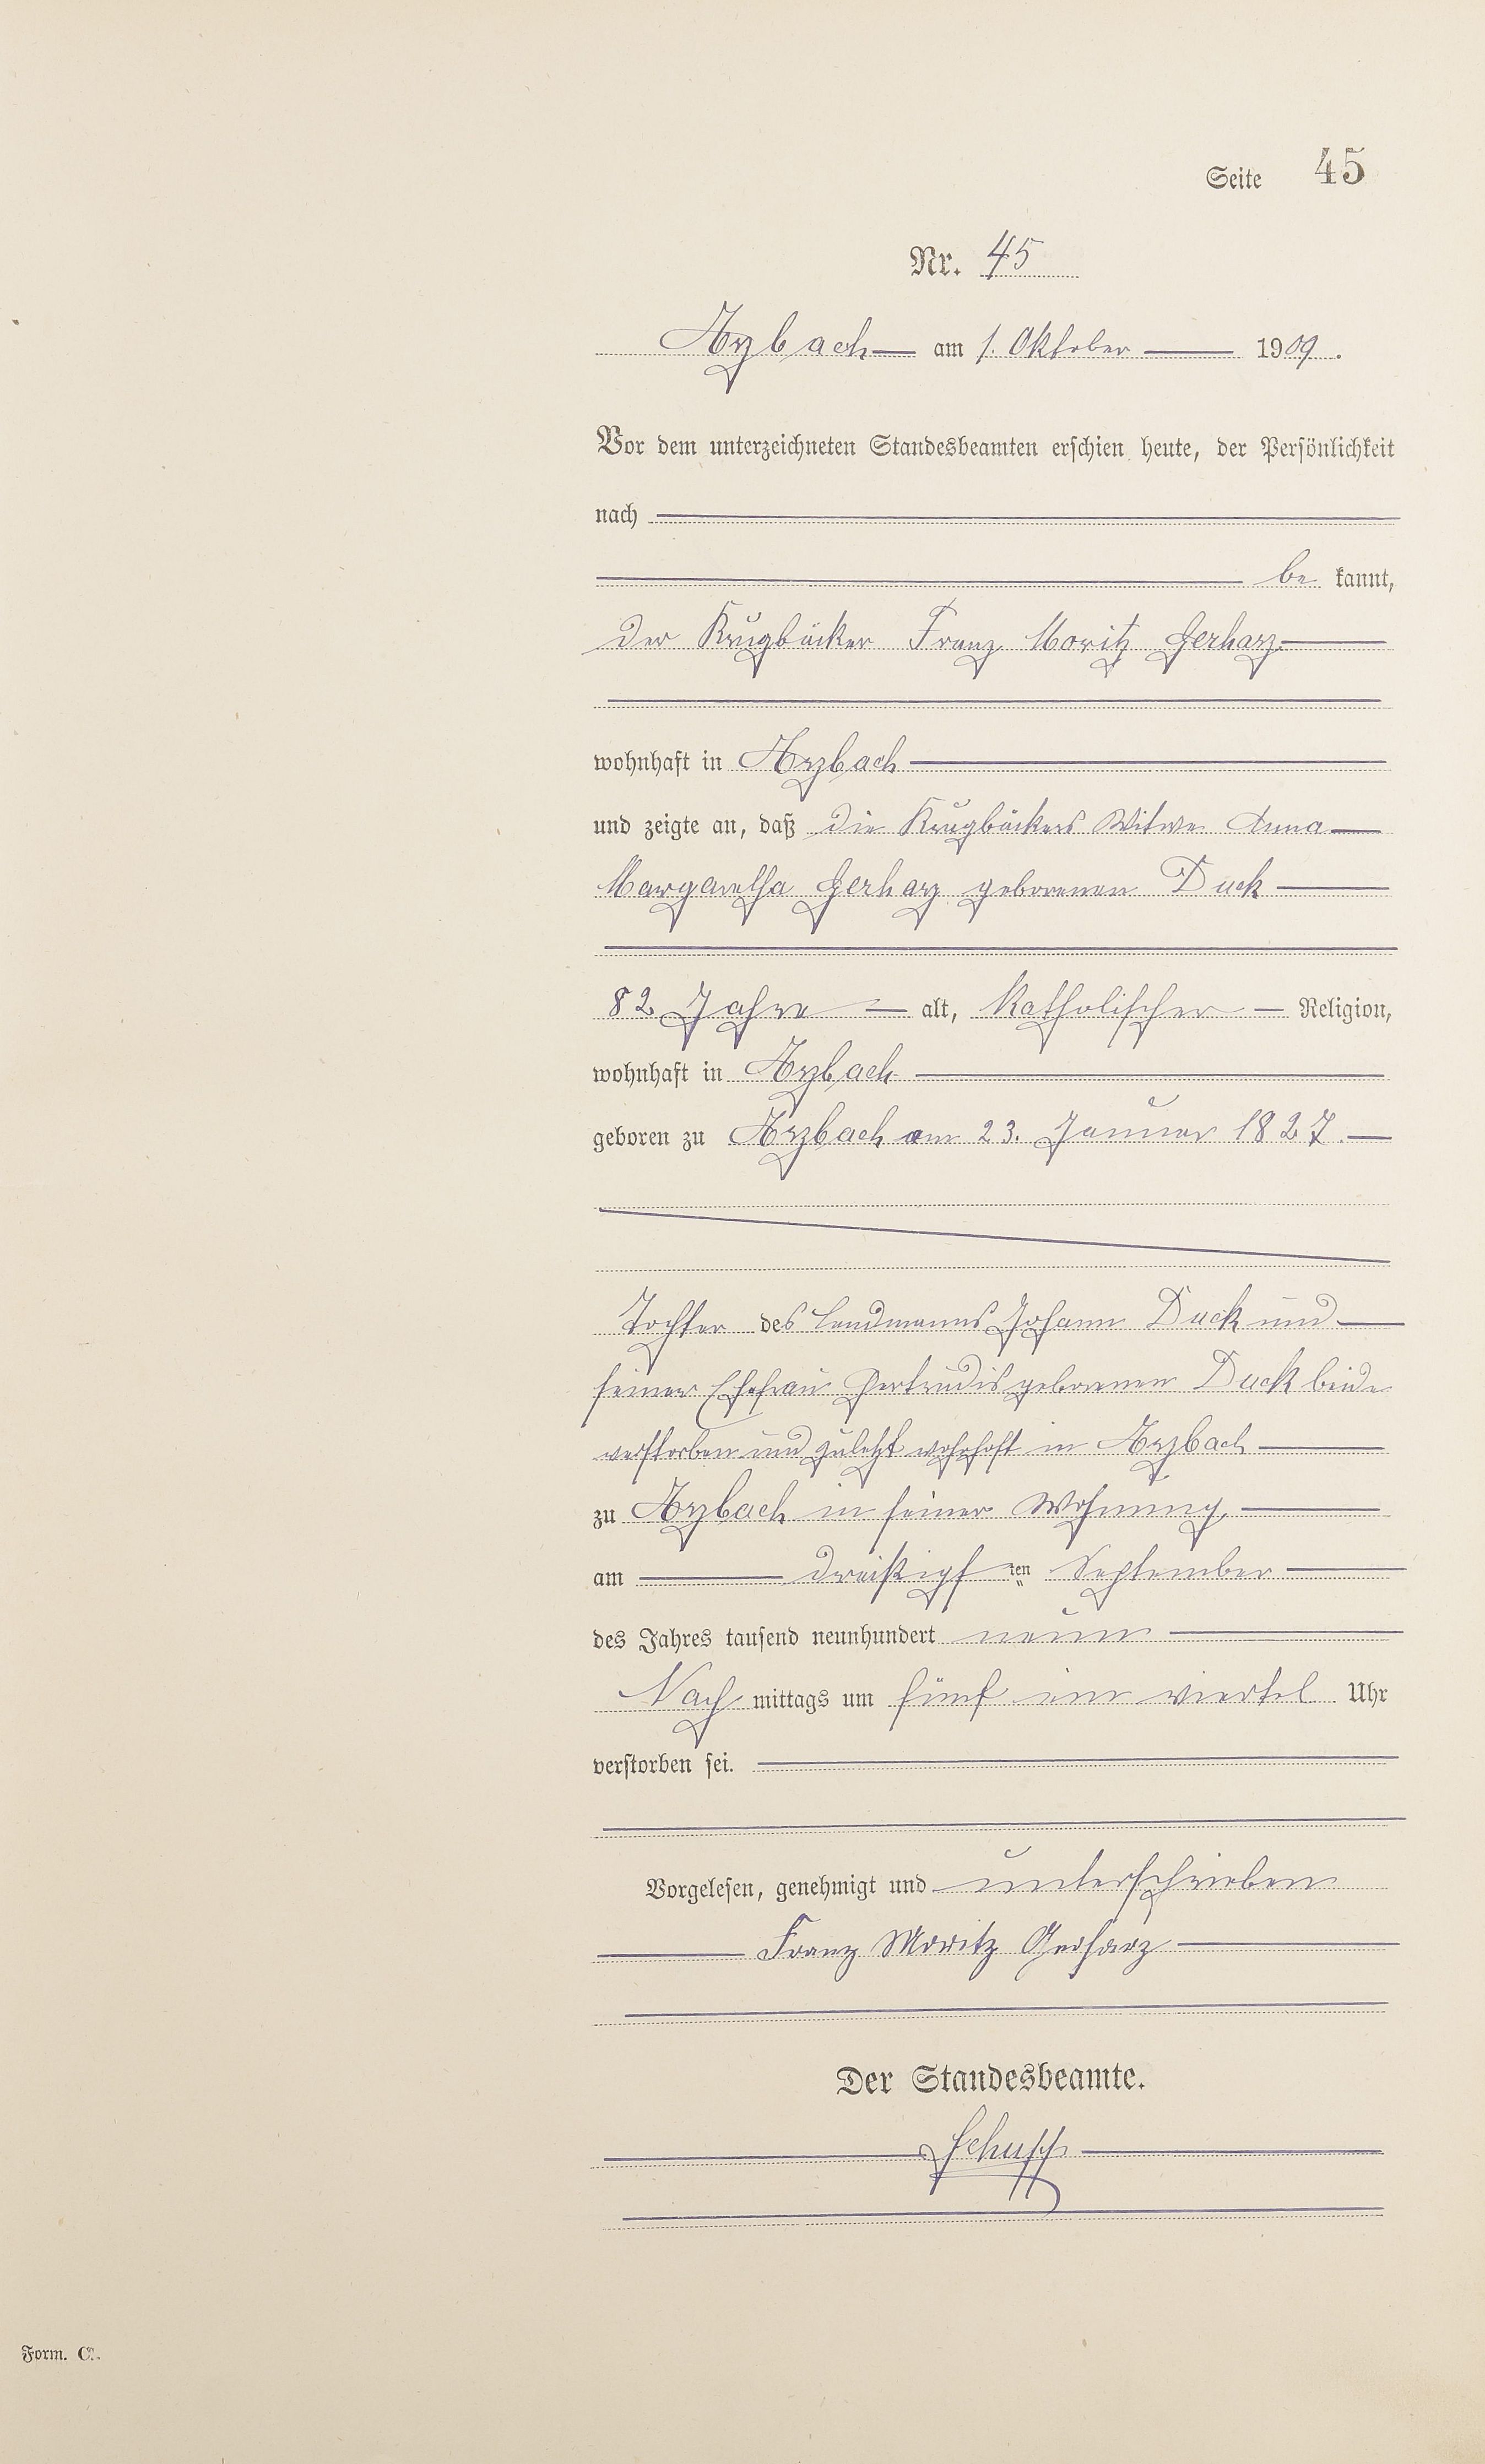 Seite 45
Nr. 45
Arzbach am 1. Oktober 1909.
Vor dem unterzeichneten Standesbeamten erschien heute, der Persönlichkeit
nach
be kannt,
der Krugbäcker Franz Moritz Gerharz
wohnhaft in Arzbach
und zeigte an, daß die Krugbäckers Witwe Anna
Margaretha Gerharz geborenen Duck
82 Jahre alt, katholischer Religion,
wohnhaft in Arzbach
geboren zu Arzbach am 23. Januar 1827.
Tochter des Landmanns Johann Duck und
seiner Ehefrau Gertrudis geborenen Duck beide
verstorben und zuletzt wohnhaft in Arzbach
zu Arzbach in seiner Wohnung,
am dreißigsten September
des Jahres tausend neunhundert neun
Nach mittags um fünf ein viertel Uhr
verstorben sei.
Vorgelesen, genehmigt und unterschrieben
Franz Moritz Gerharz
Der Standesbeamte.
Schupp
Form. C.